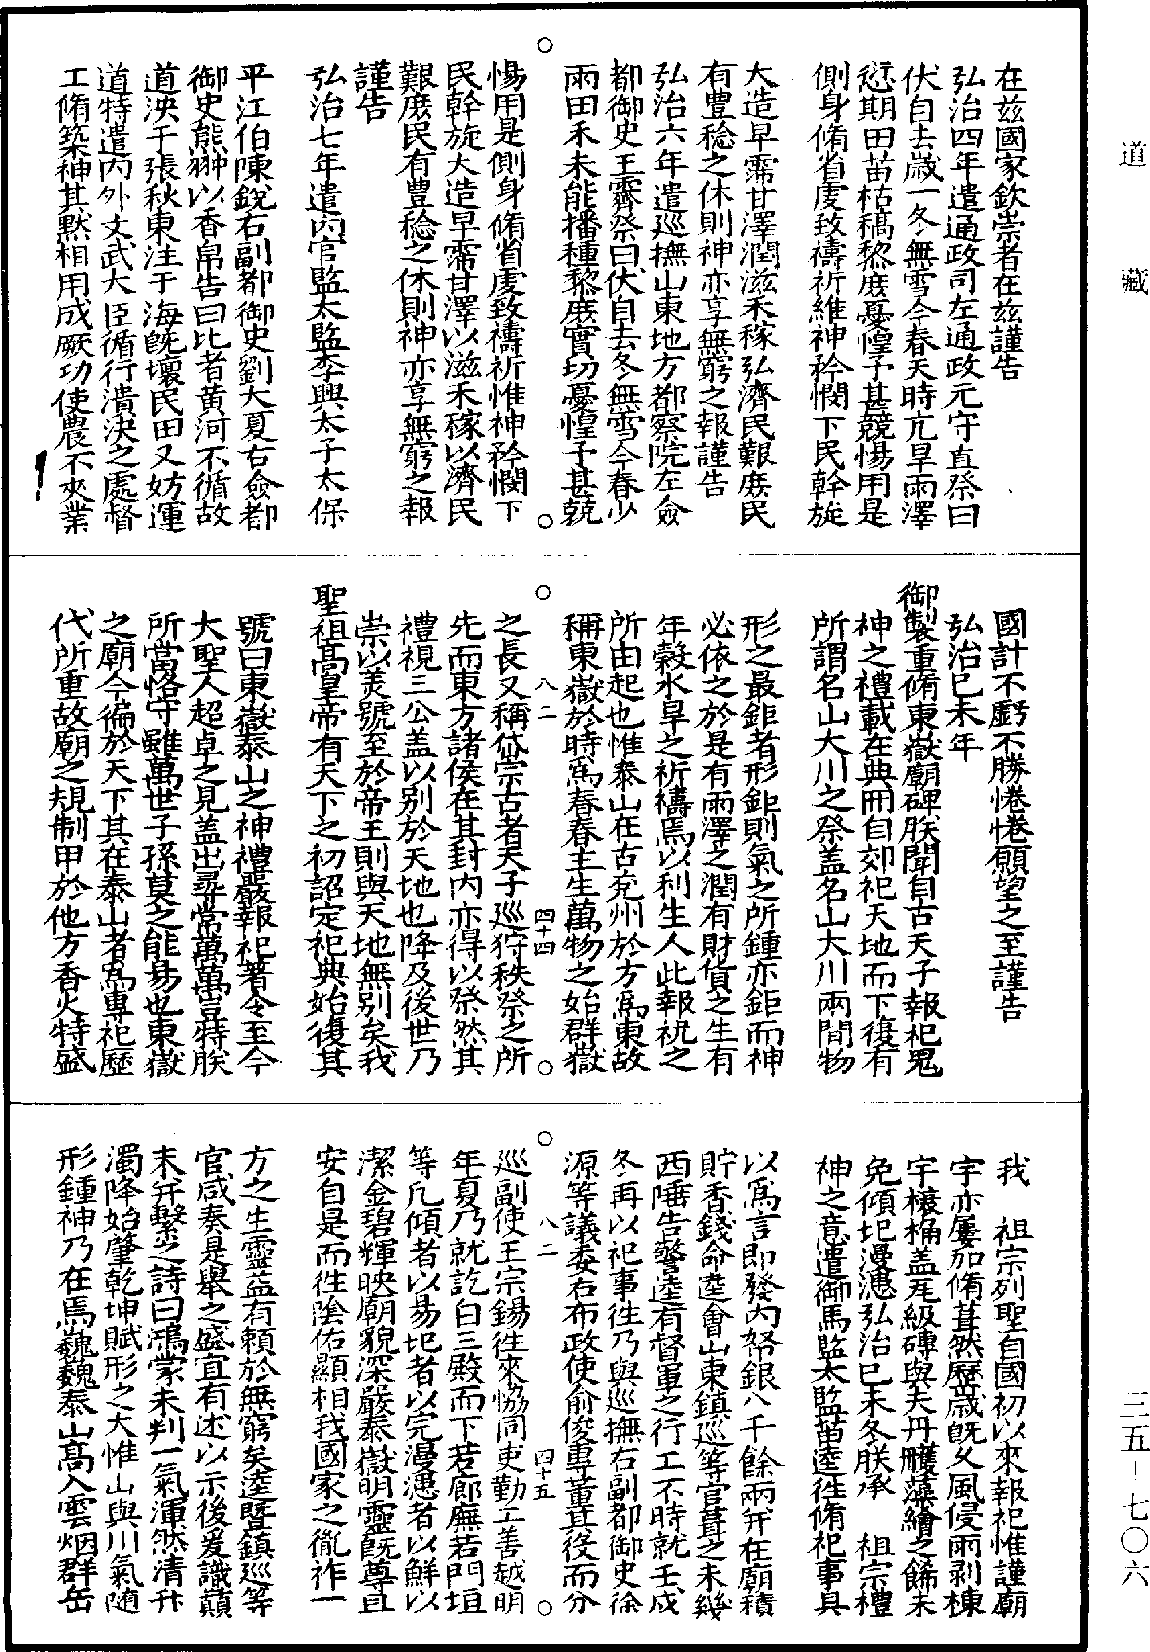 道藏
在茲國家欽崇者在茲謹告
弘治四年遣通政司左通政元守直祭曰
伏自去歲一冬無雪今春天時亢旱雨澤
愆期田苗枯稿黎庶憂惶予甚兢惕用是
側身脩省虔致禱祈維神矜憫下民幹旋
大造早霈甘澤潤滋禾稼弘濟民艱庶民
有豊稔之休則神亦享無窮之報謹告
弘治六年遣巡撫山東地方都察院左僉
都御史王霽祭曰伏自去冬無雪今春少
雨田禾未能播種黎庶實切憂惶予甚兢
惕用是側身脩省虔致禱祈惟神矜憫下
民幹旋大造早霈甘澤以滋禾稼以濟民
艱庶民有豊稔之休則神亦享無窮之報
謹告
弘治七年遣内官監太監李興太子太保
平江伯陳銳右副都御史劉大夏右僉都
御史熊翀以香帛告曰比者黄河不循故
道決于張秋東注于海旣壞民田又妨運
道特遣内外文武大臣循行潰決之處督
工脩築神其默相用成厥功使農不失業
國計不虧不勝惓惓願望之至謹告
弘治己未年
御製重脩東嶽廟碑朕聞自古天子報祀鬼
神之禮載在典冊自郊祀天地而下復有
所謂名山大川之祭盖名山大川兩間物
形之最鉅者形鉅則氣之所鍾亦鉅而神
必依之於是有雨澤之潤有財貨之生有
年穀水旱之祈禱焉以利生人此報祝之
所由起也惟泰山在古兖州於方爲東故
稱東嶽於時爲春春主生萬物之始群嶽
八二 四十四
之長又稱岱宗古者天子巡狩秩祭之所
先而東方諸侯在其封内亦得以祭然其
禮視三公盖以别於天地也降及後世乃
崇以美號至於帝王則與天地無别矣我
聖祖髙皇帝有天下之初詔定祀典始復其
號曰東嶽泰山之神禮嚴報祀著令至今
大聖人超卓之見盖出尋常萬萬豈特朕
所當恪守雖萬世子孫莫之能易也東嶽
之廟今徧於天下其在泰山者爲專祀歷
代所重故廟之規制甲於他方香火特盛
我 祖宗列聖自國初以來報祀惟謹廟
宇亦屢加脩葺然歷歲旣乆風侵雨剥棟
宇榱桷盖瓦級磚與夫丹雘藻繪之餙未
免傾圮漫漶弘治己未冬朕承 祖宗禮
神之意遣御馬監太監苗逵徃脩祀事具
以爲言即發内帑銀八千餘兩并在廟積
貯香錢命逵㑹山東鎮巡等官葺之未幾
西陲告警逵有督軍之行工不時就壬戍
冬再以祀事徃乃與巡撫右副都御史徐
源等議委右布政使俞俊專董其役而分
八二 四十五
巡副使王宗錫徃來恊同吏勤工善越明
年夏乃就訖白三殿而下若廊廡若門垣
等凡傾者以易圯者以完漫漶者以鮮以
潔金碧輝映廟貌深嚴泰嶽明靈旣尊且
安自是而徃隂佑顯相我國家之胤祚一
方之生靈益有頼於無窮矣逵曁鎮巡等
官咸奏是舉之盛宜有述以示後爰識顛
末并繫之詩曰鴻蒙未判一氣渾然清升
濁降始肇乾坤賦形之大惟山與川氣随
形鍾神乃在焉巍巍泰山髙入雲烟群岳
三五—七〇六